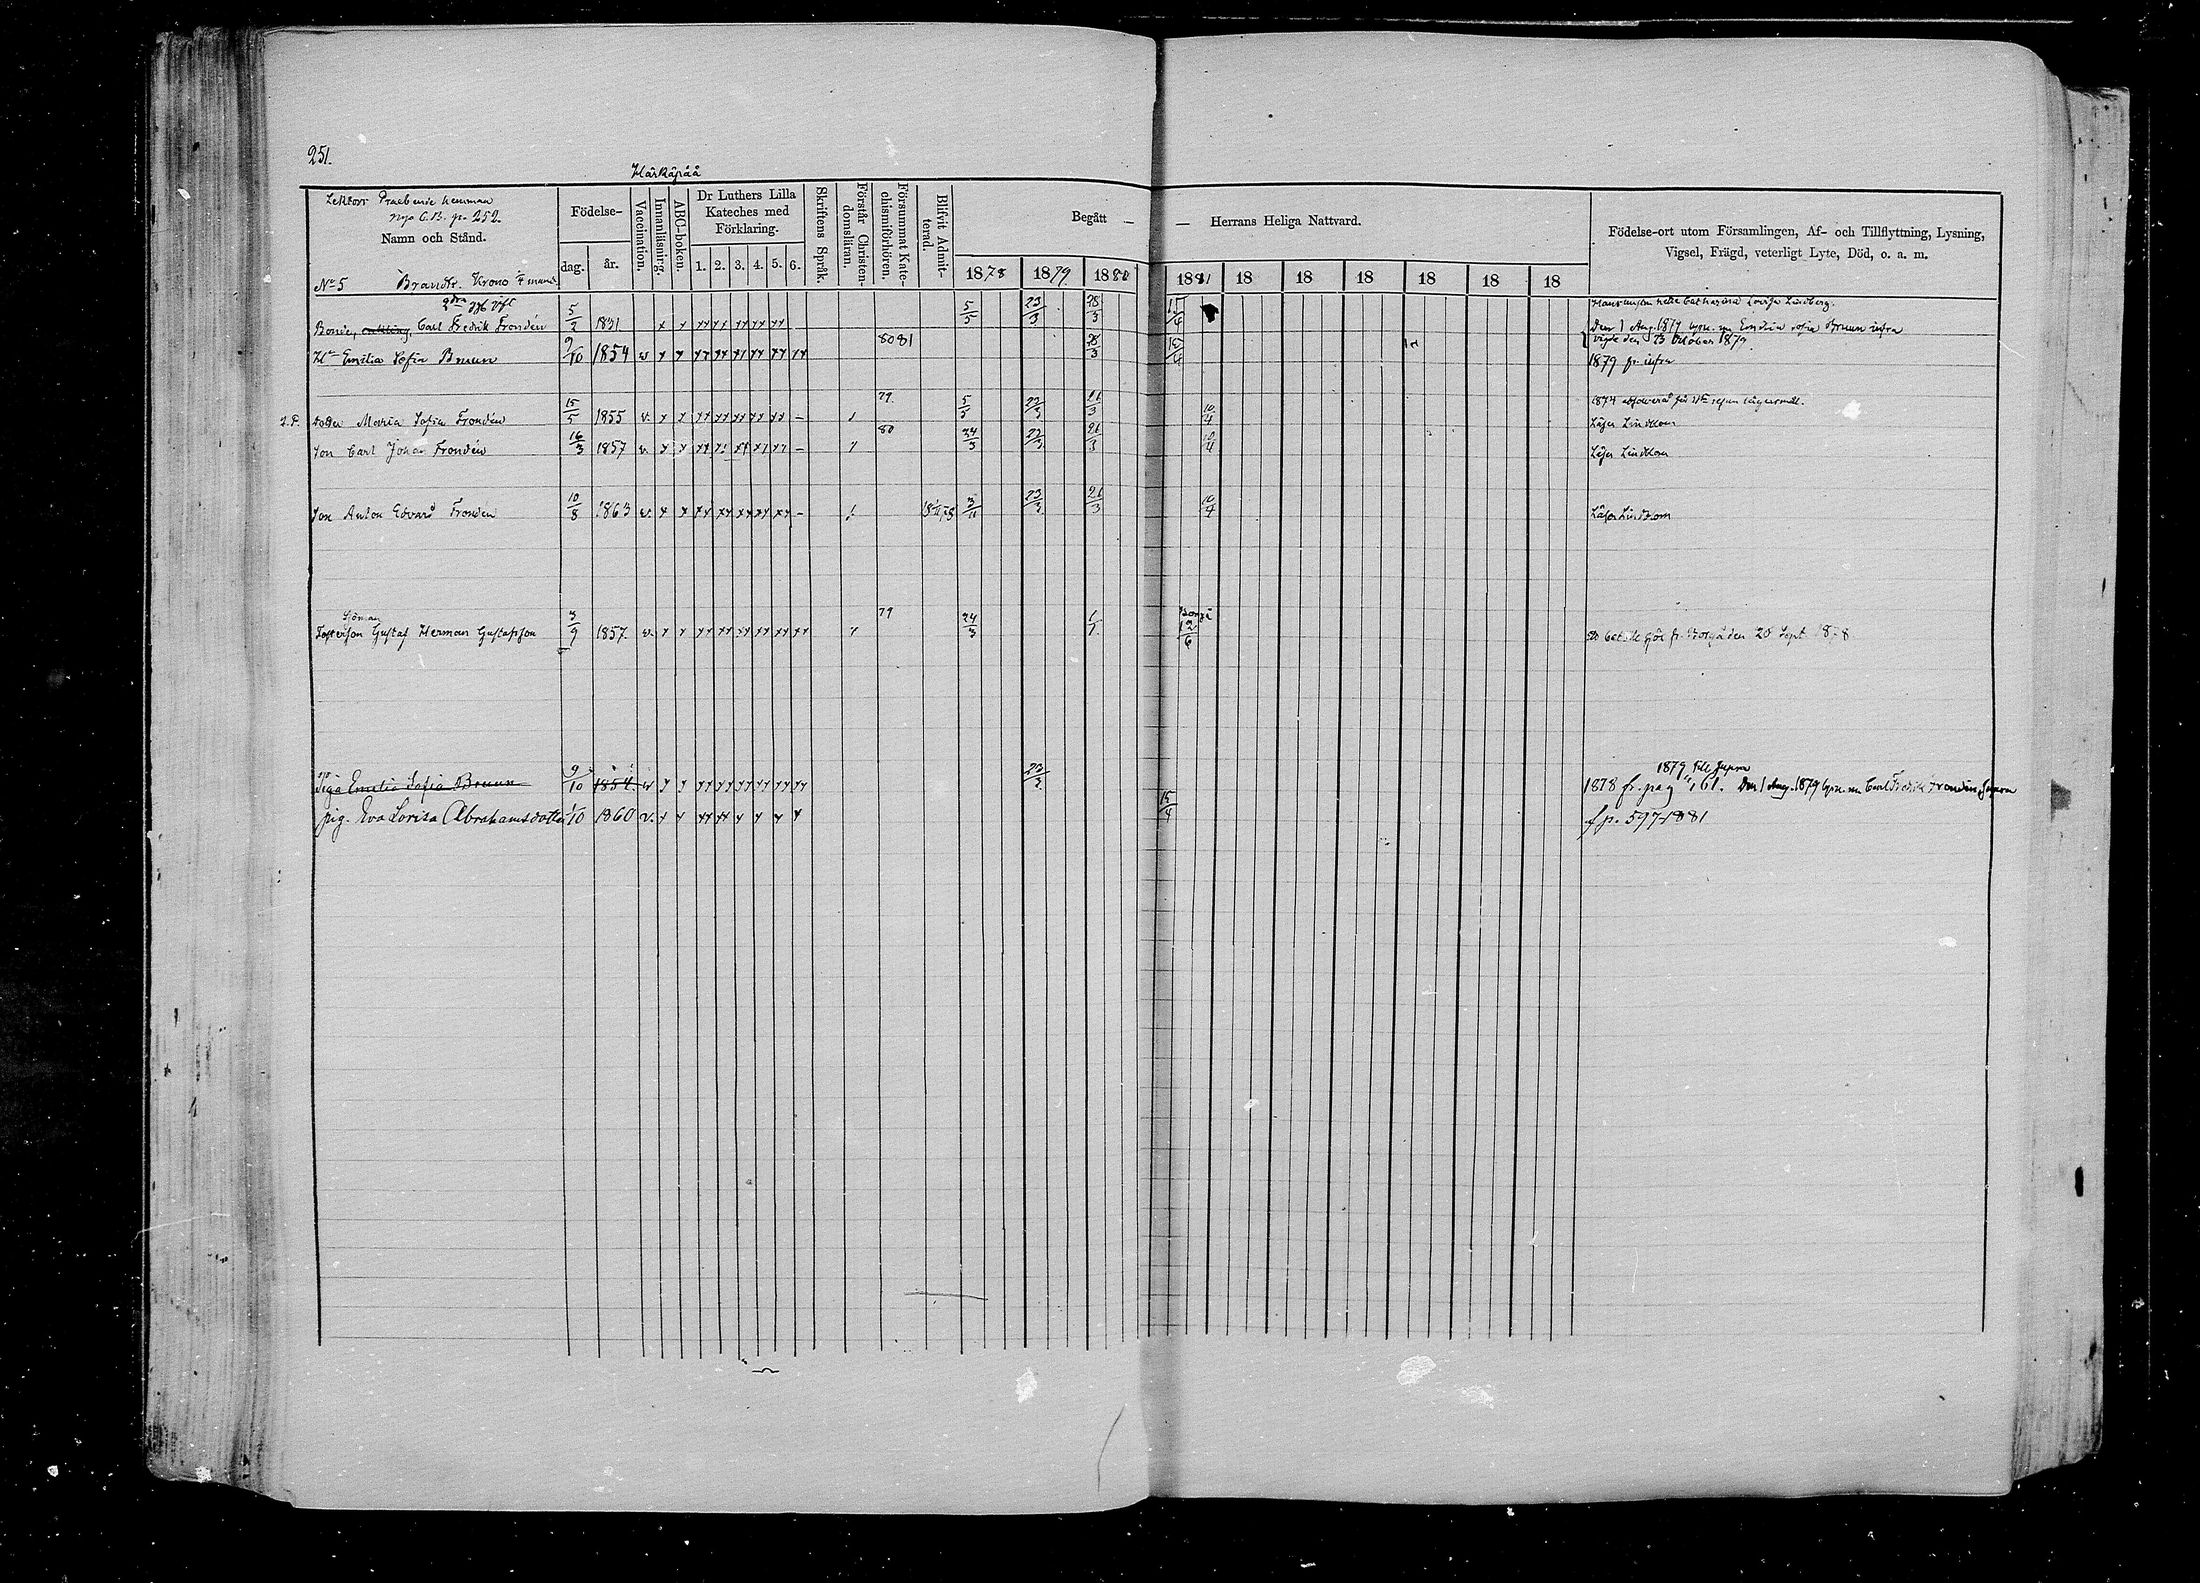 251.
Härkäpää
Lektors Praebende hemman
nya C.B. p. 252.
Namn och Stånd.
Födelse-
dag. år.
Vaccination.
Innanläsning.
ABC-boken.
Dr Luthers Lilla Kateches med Förklaring.
1. 2. 3. 4. 5. 6.
Skriftens Språk.
Förstår Christendomsläran.
Försummat Katechismiförhören.
Blifvit Admitterad.
Begått — — Herrans Heliga Nattvard.
1878 1879. 1880 1881 18 18 18 18 18 18
Födelse-ort utom Församlingen, Af- och Tillflyttning, Lysning,
Vigsel, Frägd, veterligt Lyte, Död, o. a. m.
No 5 Brandtr. Krono
2dra gft
5/5 23/3 28/3 15/4
Bonde, enkling, Carl Fredrik Frondén 5/2 1831 x x xx xx xx xx xx
Den 1 Aug. 1879 lyst. m Emilia Sofia Bruun infra
vigde den 23 Oktober 1879
Hu Emilia Sofia Bruun 9/10 1854 v x x xx xx xx xx xx xx 80 81 28/3 15/4 1879 fr. infra
Dotter Maria Sofia Frondén 15/5 1855 v. x x xx xx xx xx xx – 79. 5/5 21/3 10/4
Läser Lindkom
Son Carl Johan Frondén 16/3 1857 v. x x xx xx xx xx xx – 80 24/3 21/3 10/4 Läser Lindkom
Son Anton Edvard Frondén 10/8 1863 v. x x xx xx xx xx xx – 3/11 23/3 21/3 10/4 Läser Lindkom
Sjöman
Fosterson Gustaf Herman Gustafsson 3/9 1857. v. x x xx xx xx xx xx xx 79 24/3 1/1 Borgå 12/6 fr. Borgå den 20 Sept. 1878
1879 till Supra
Piga Emilia Sofia Bruun 9/10 1854. v x x xx xx xx xx xx xx 23/3 1878 fr. pag 161. Den 1 Aug. 1879 lyst. m Carl Fredrik Frondén, Supra
pig. Eva Lovisa Abrahamsdotter 1/10 1860 v. x x xx xx x x x x 15/4 f p. 597 1881